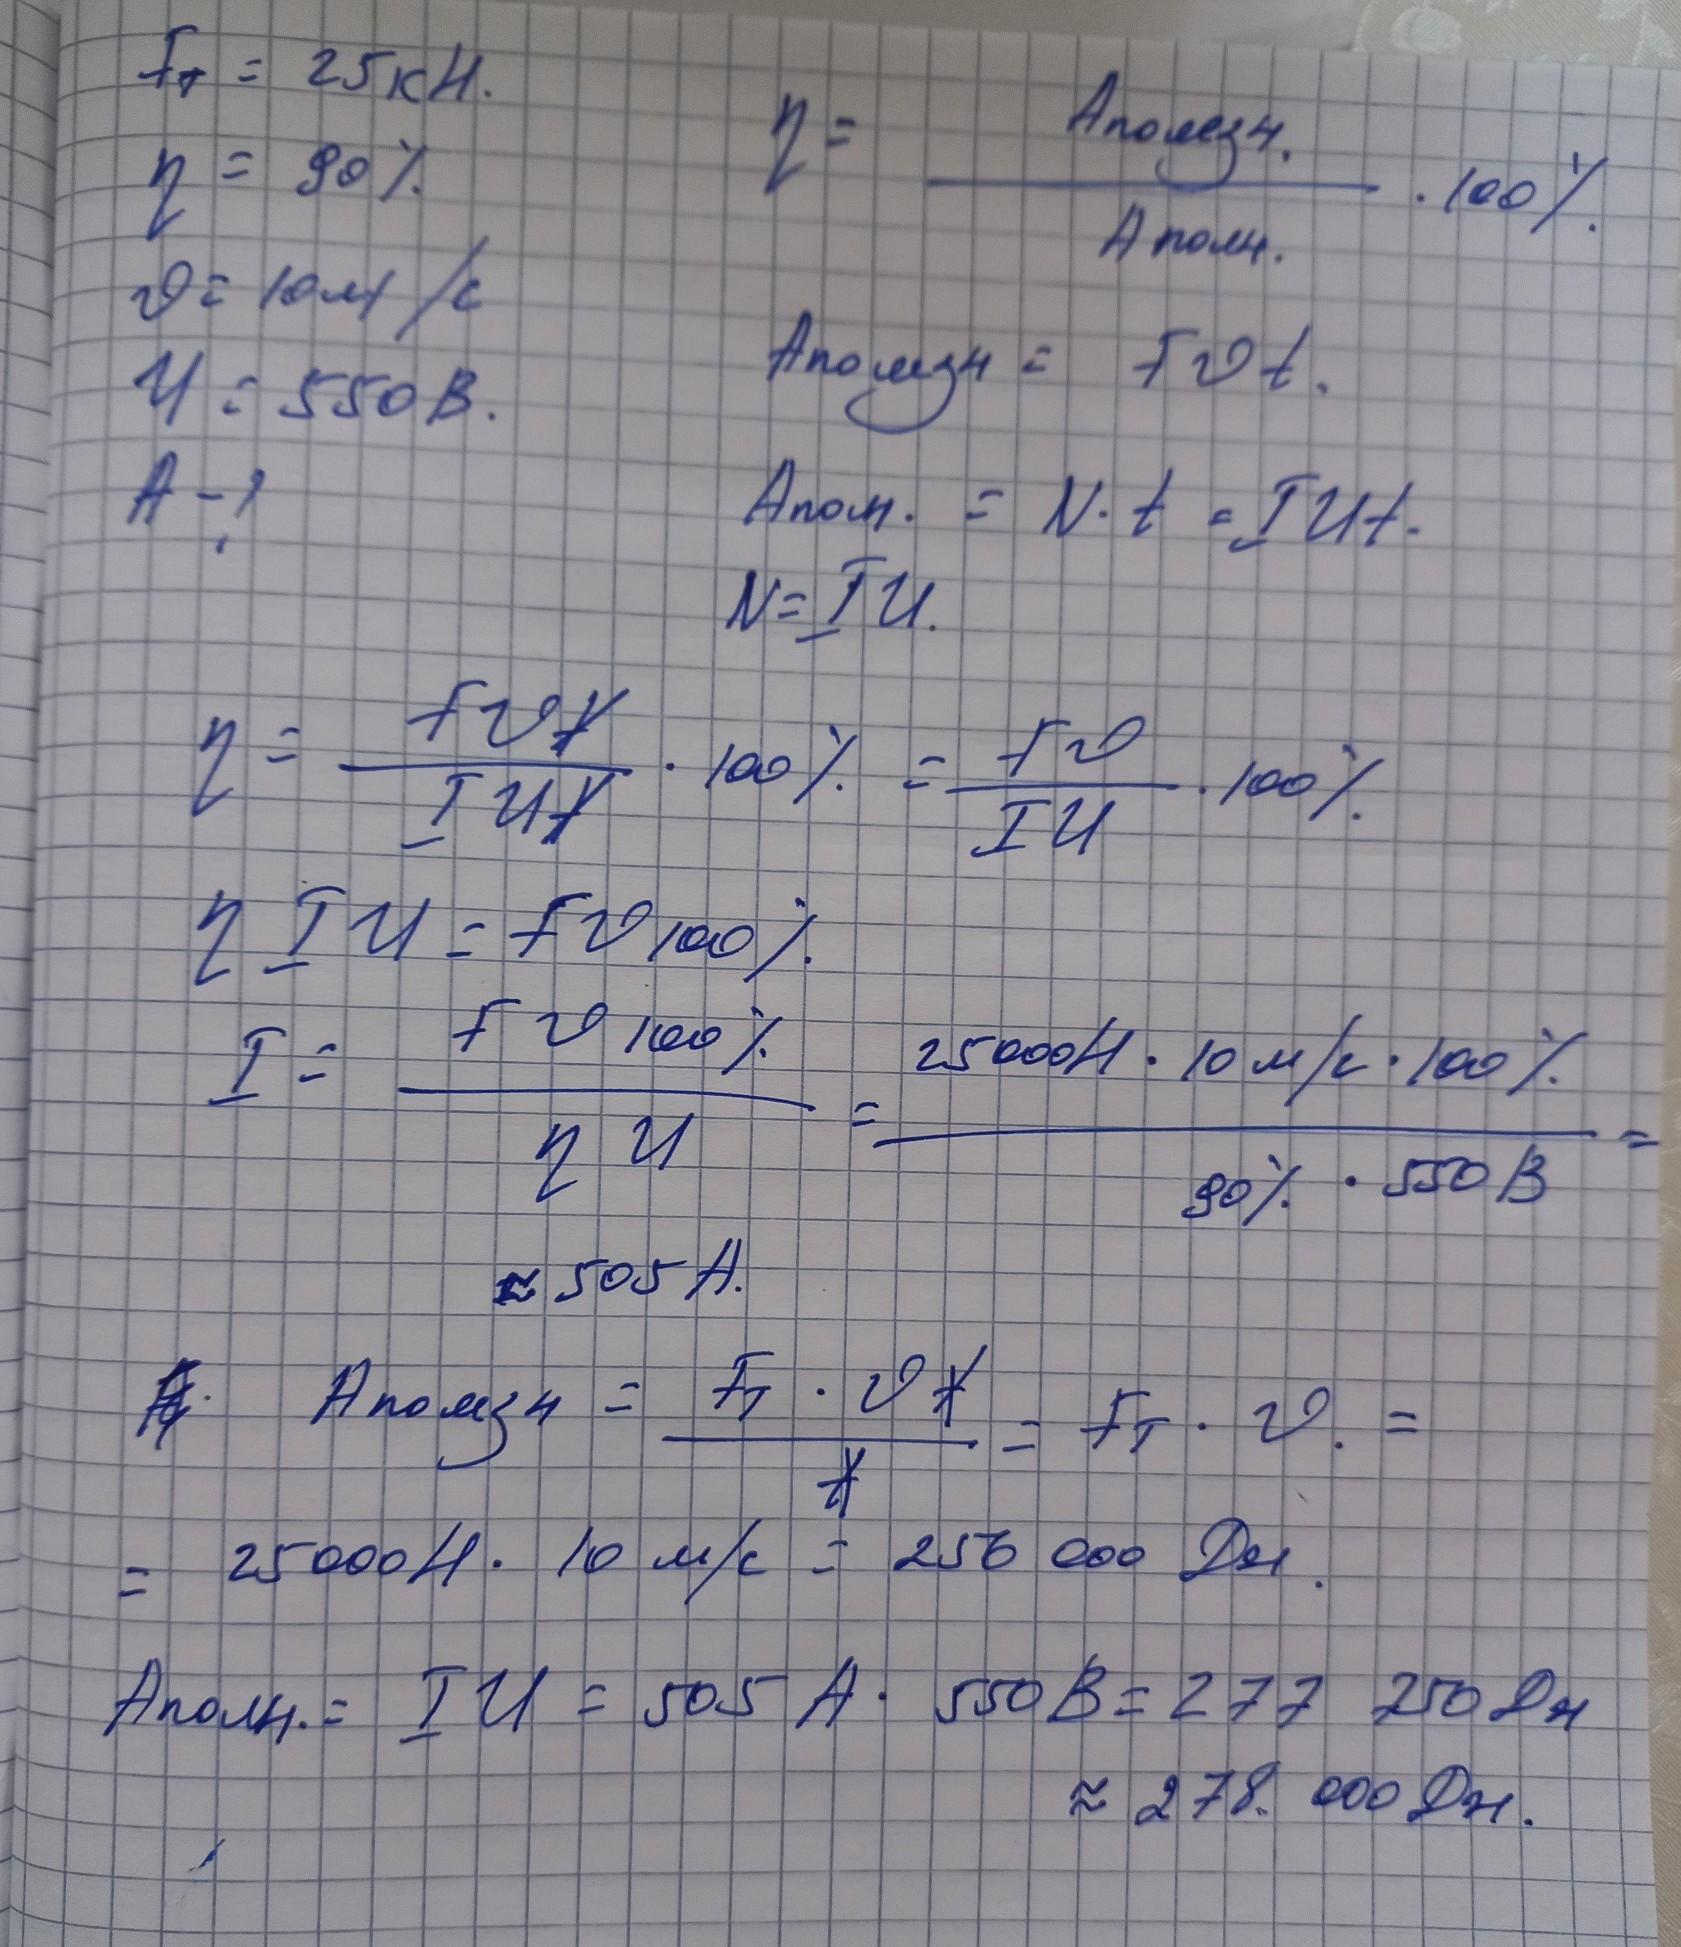 Fт = 25кН.
η = 90%.
υ = 10м/с
U = 550В.
A - ?
η = Аполезн. / Аполн. · 100%.
Аполезн = Fυt.
Аполн. = N·t = IUt.
N = IU.
η = Fυt / IUt · 100%. = Fυ / IU · 100%.
η IU = Fυ100%.
I = Fυ100% / ηU = 25000Н · 10м/с · 100% / 90% · 550В =
≈ 505А.
Аполезн = Fт · υt / t = Fт · υ. =
= 25000Н · 10 м/с = 250 000 Дж.
Аполн. = IU = 505 А · 550В = 277 750Дж
≈ 278. 000Дж.